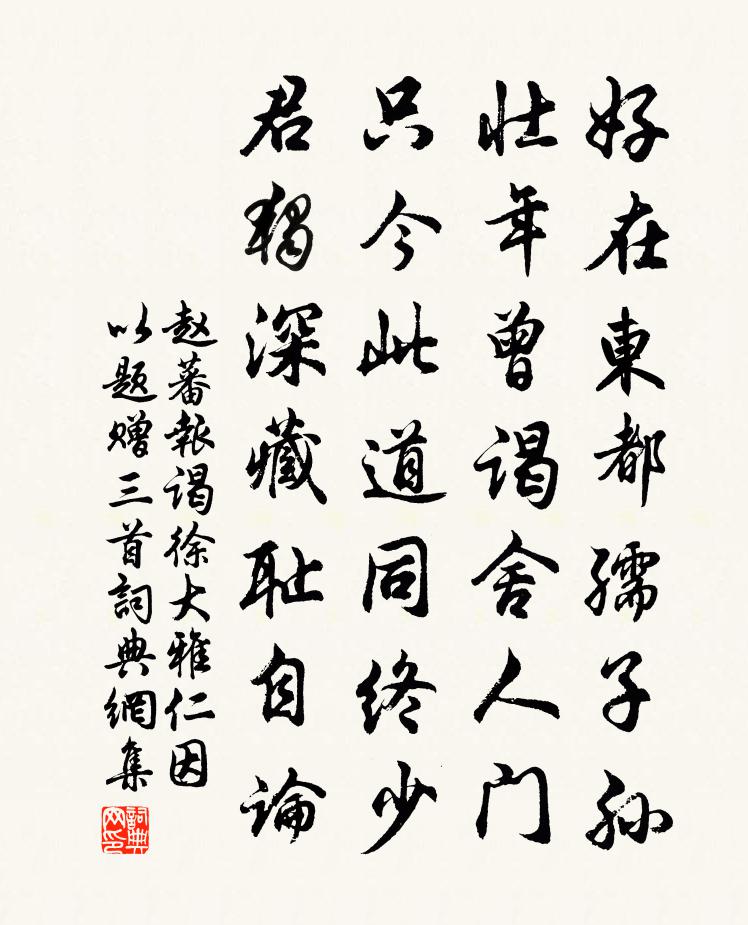 好在東都孺子孙
壮年曾谒舍人门
只今此道同终少
君独深藏耻自论
赵蕃報谒徐大雅仁因
以题赠三首詞典網集
詞典网印